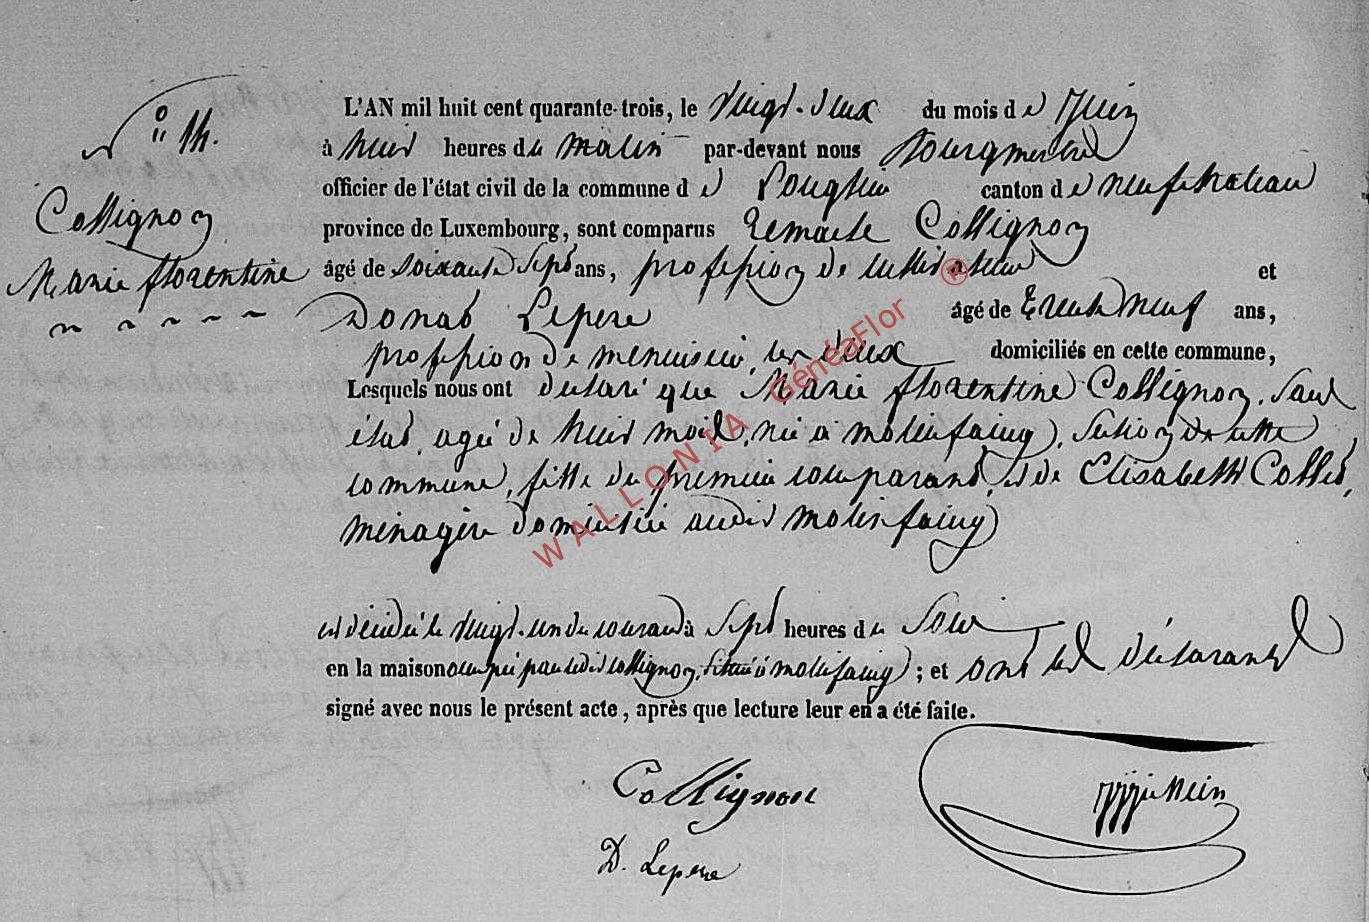 n° 14.
Collignon
Marie florentine
L'AN mil huit cent quarante-trois, le vingt-deux du mois de Juin
à huit heures du matin par-devant nous Bourgmestre
officier de l'état civil de la commune de Longlier canton de neufchateau
province de Luxembourg, sont comparus Remacle Collignon
âgé de soixante Sept ans, profession de cultivateur et
Donat Lepere âgé de trente neuf ans,
profession de menuisier, les deux domiciliés en cette commune,
Lesquels nous ont declaré que Marie florentine Collignon, Sans
état, agée de huit mois, née à molinfaing, Section de cette
commune, fille du premier comparant, et de Elisabeth Collet,
ménagère domiciliée audit molinfaing
est décédée le vingt-un du courant à Sept heures du Soir
en la maison occupée par ledit collignon, Située à molinfaing ; et ont les déclarants
signé avec nous le présent acte, après que lecture leur en a été faite.
Collignon
D. Lepere
WALLONIA GénéaFlor ®